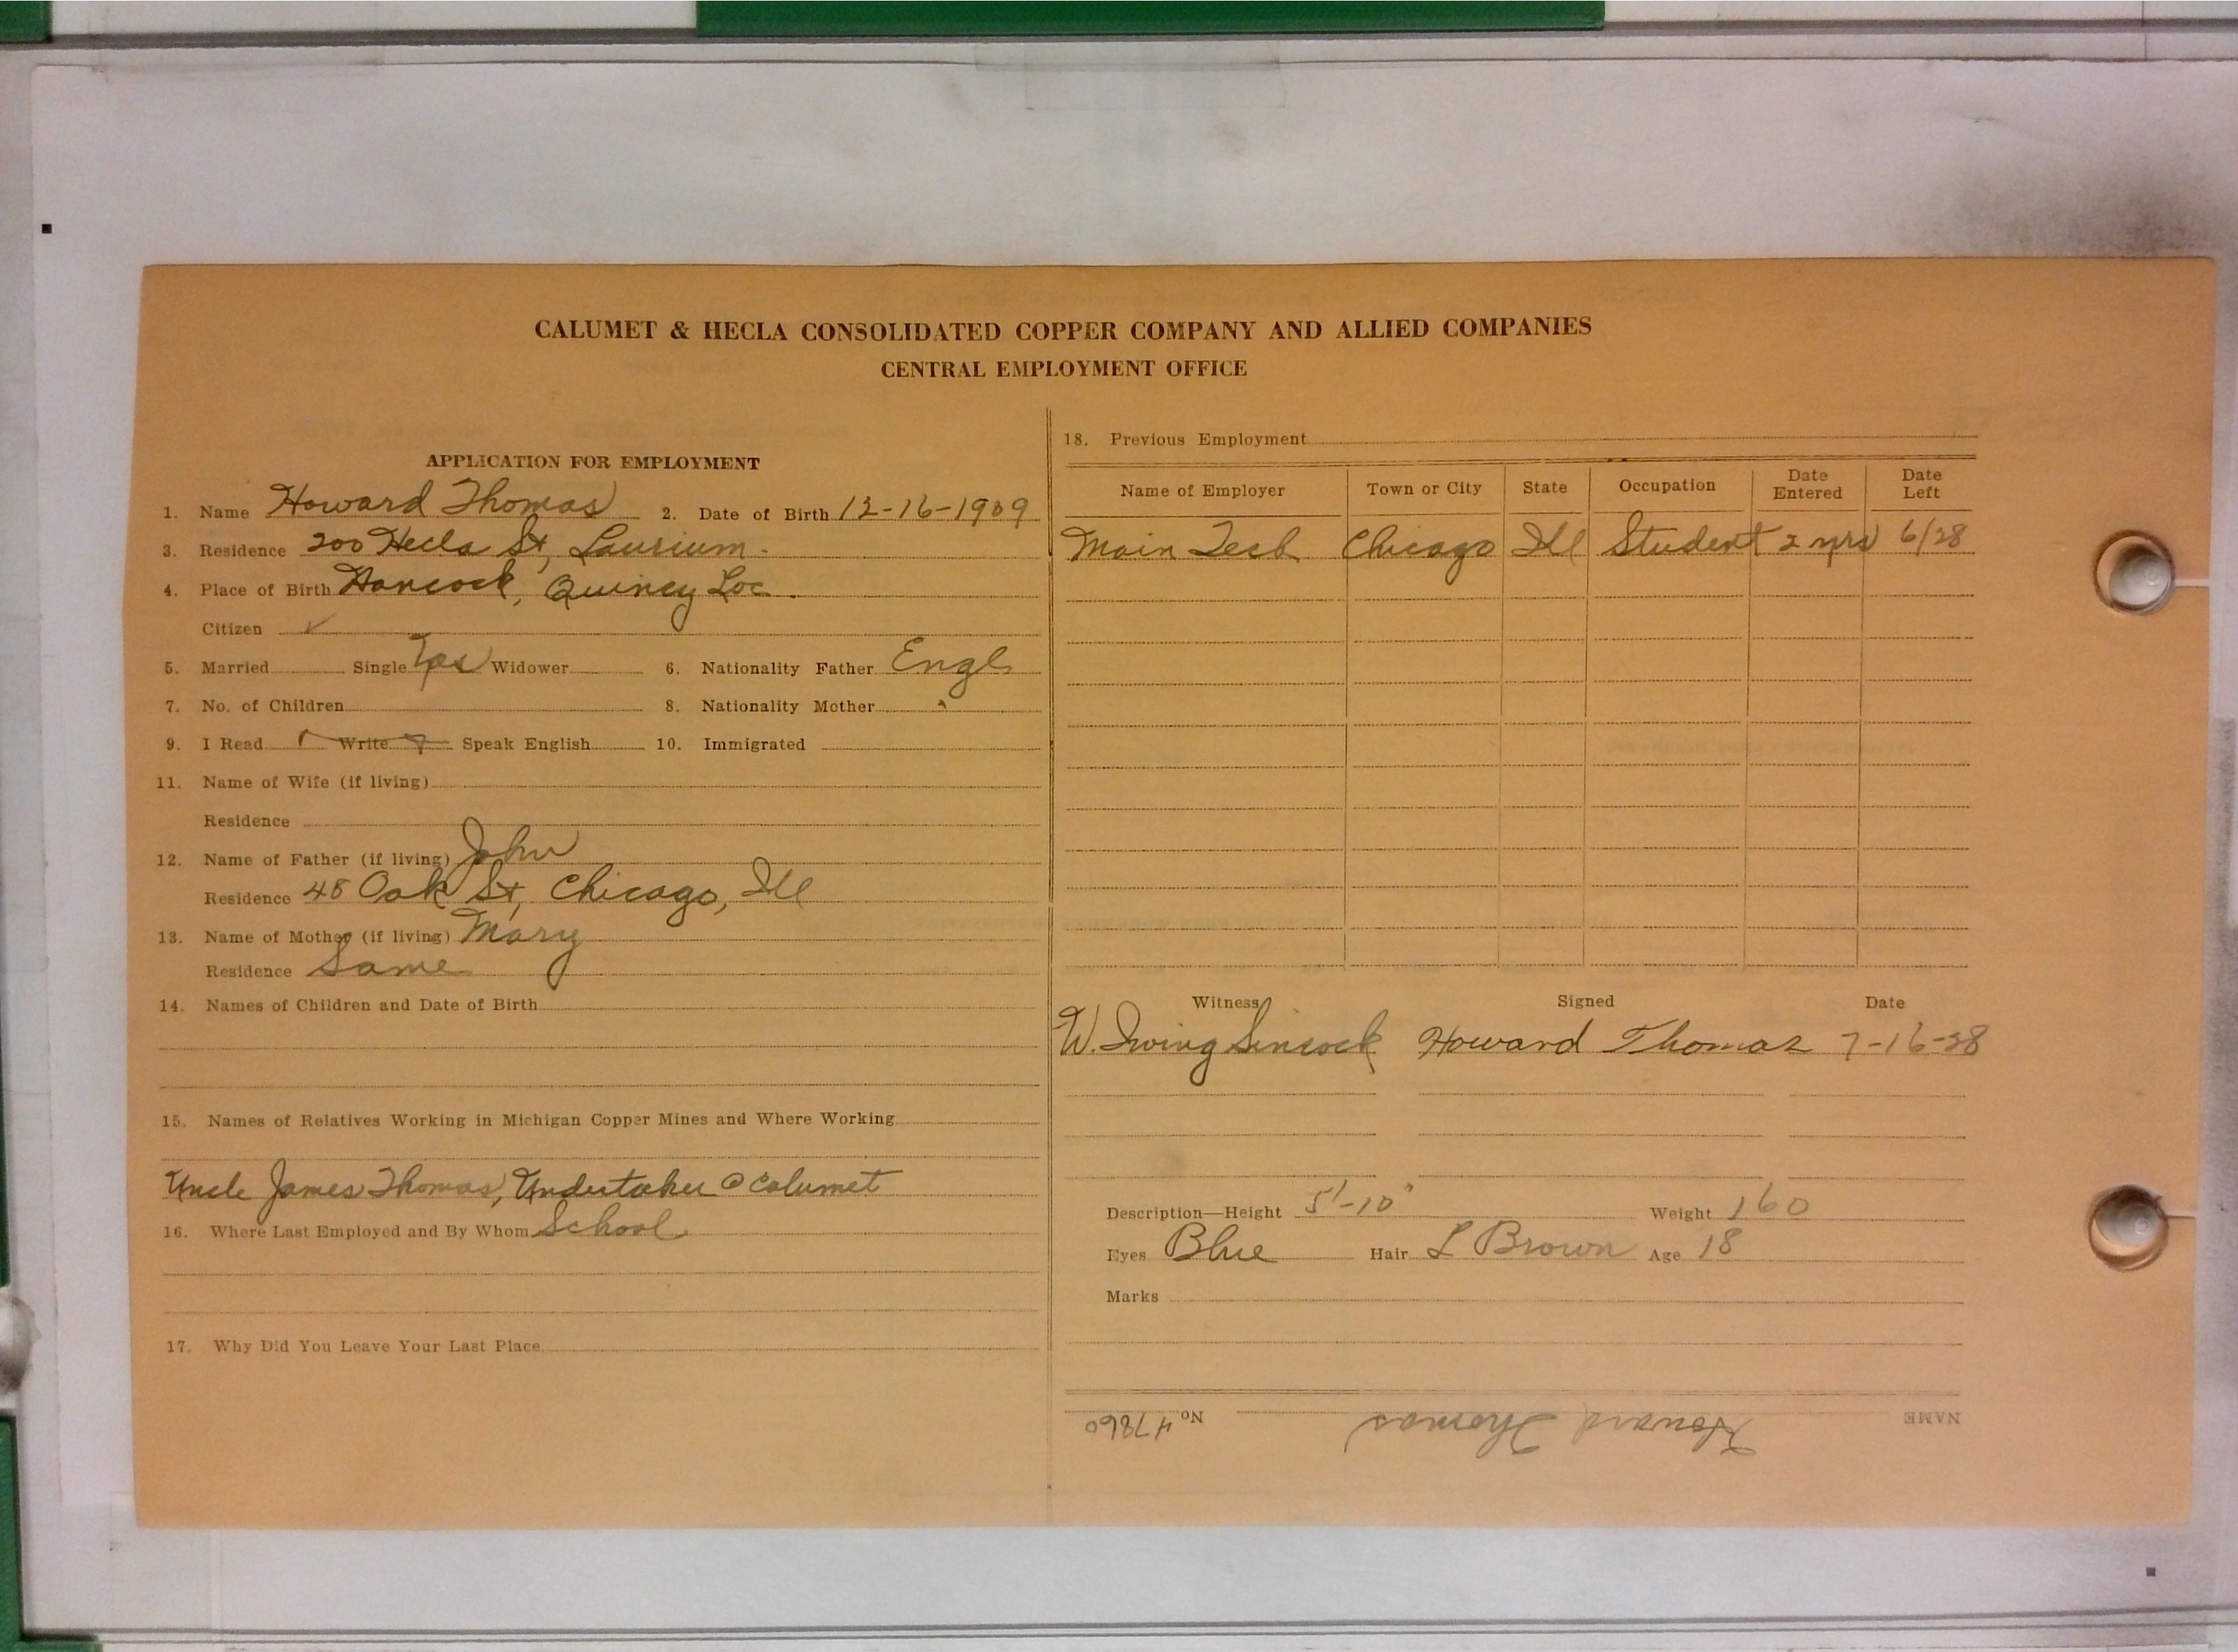 CALUMET & HECLA CONSOLIDATED COPPER COMPANY AND ALLIED COMPANIES
CENTRAL EMPLOYMENT OFFICE
APPLICATION FOR EMPLOYMENT
1. Name Howard Thomas 2. Date of Birth 12-16-1909
3. Residence 200 Hecla St, Laurium.
4. Place of Birth Hancock, Quincy Loc.
Citizen ✓
5. Married Single Yes Widower 6. Nationality Father Engl
7. No. of Children 8. Nationality Mother "
9. I Read Write Speak English 10. Immigrated
11. Name of Wife (if living)
Residence
12. Name of Father (if living) John
Residence 48 Oak St, Chicago, Ill
13. Name of Mother (if living) Mary
Residence Same
14. Names of Children and Date of Birth
15. Names of Relatives Working in Michigan Copper Mines and Where Working
Uncle James Thomas, Undertaker @ Calumet
16. Where Last Employed and By Whom School
17. Why Did You Leave Your Last Place
18. Previous Employment
Name of Employer Town or City State Occupation Date Entered Date Left
Main Tech Chicago Ill Student 2 yrs 6/28
Witness Signed Date
W. Irving Sincock Howard Thomas 7-16-28
Description—Height 5'-10" Weight 160
Eyes Blue Hair L Brown Age 18
Marks
NAME Howard Thomas No 47860